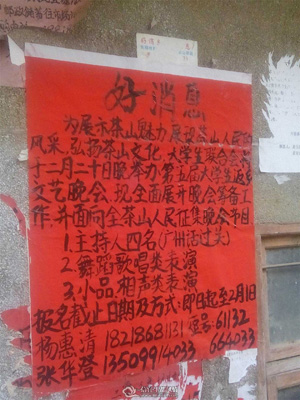 好消息
为展示茶山魅力,展设茶山人民的
风采,弘扬茶山文化,大学生联合会
于二月二十日举办第五届大学生返乡
文艺晚会,现全面展开晚会筹备工
作,并面向全茶山人民征集晚会节目
1.主持人四名(广州话过关)
2.舞蹈歌唱类表演
3.小品相声类表演
报名截止日期及方式:即日起至2月1
杨惠清 18218681131 短号:61132
张华登 13509914033 664033